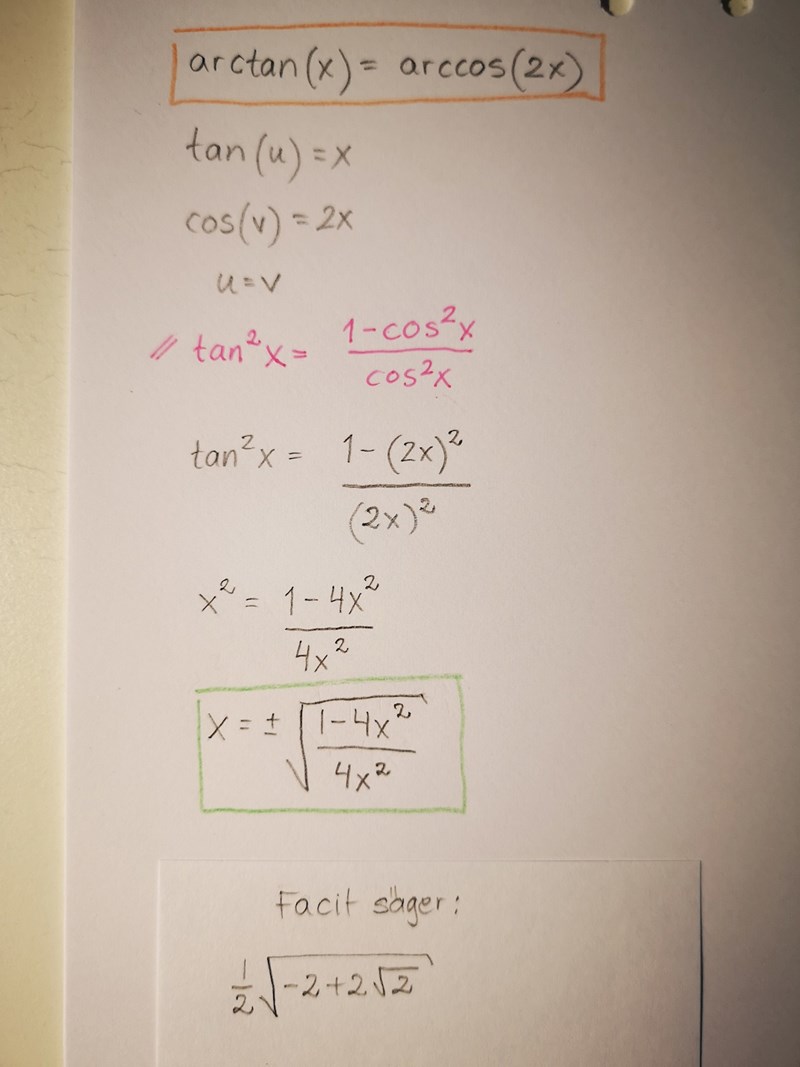 arctan(x) = arccos(2x)
tan(u) = x
cos(v) = 2x
u = v
// tan²x = (1-cos²x)/(cos²x)
tan²x = (1-(2x)²)/((2x)²)
x² = (1-4x²)/(4x²)
x = ± √((1-4x²)/(4x²))
Facit säger:
1/2 √(-2+2√2)